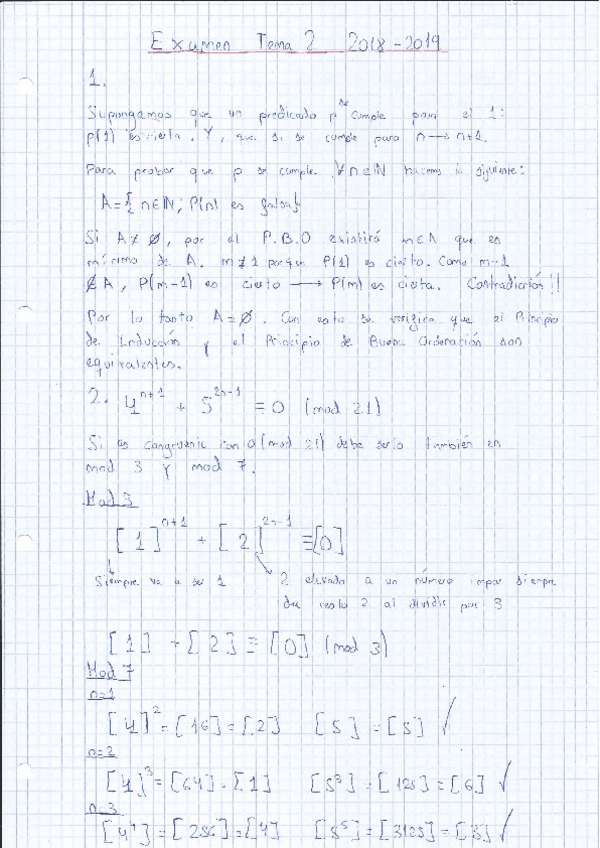 Examen Tema 2 2018-2019
1.
Supongamos que un predicado p se cumple para el 1:
p(1) es cierta. Y, que si se cumple para n → n+1.
Para probar que p se cumple ∀n∈ℕ hacemos lo siguiente:
A={n∈ℕ; P(n) es falsa}
Si A≠∅, por el P.B.O existirá m∈A que es
mínimo de A. m≠1 porque P(1) es cierto. Como m-1
∉A, P(m-1) es cierto → P(m) es cierta. Contradicción!!
Por lo tanto A=∅. Con esto se verifica que el Principio
de Inducción y el Principio de Buena Ordenación son
equivalentes.
2. 4^{n+1} + 5^{2n-1} ≡ 0 (mod 21)
Si es congruente con 0 (mod 21) debe serlo también en
mod 3 y mod 7.
Mod 3
[1]^{n+1} + [2]^{2n-1} ≡ [0]
Siempre va a ser 1 2 elevado a un número impar siempre
da resto 2 al dividir por 3
[1] + [2] ≡ [0] (mod 3)
Mod 7
n=1
[4]^2 = [16] = [2] [5] = [5] ✓
n=2
[4]^3 = [64] = [1] [5^3] = [125] = [6] ✓
n=3
[4^4] = [256] = [4] [5^5] = [3125] = [3] ✓